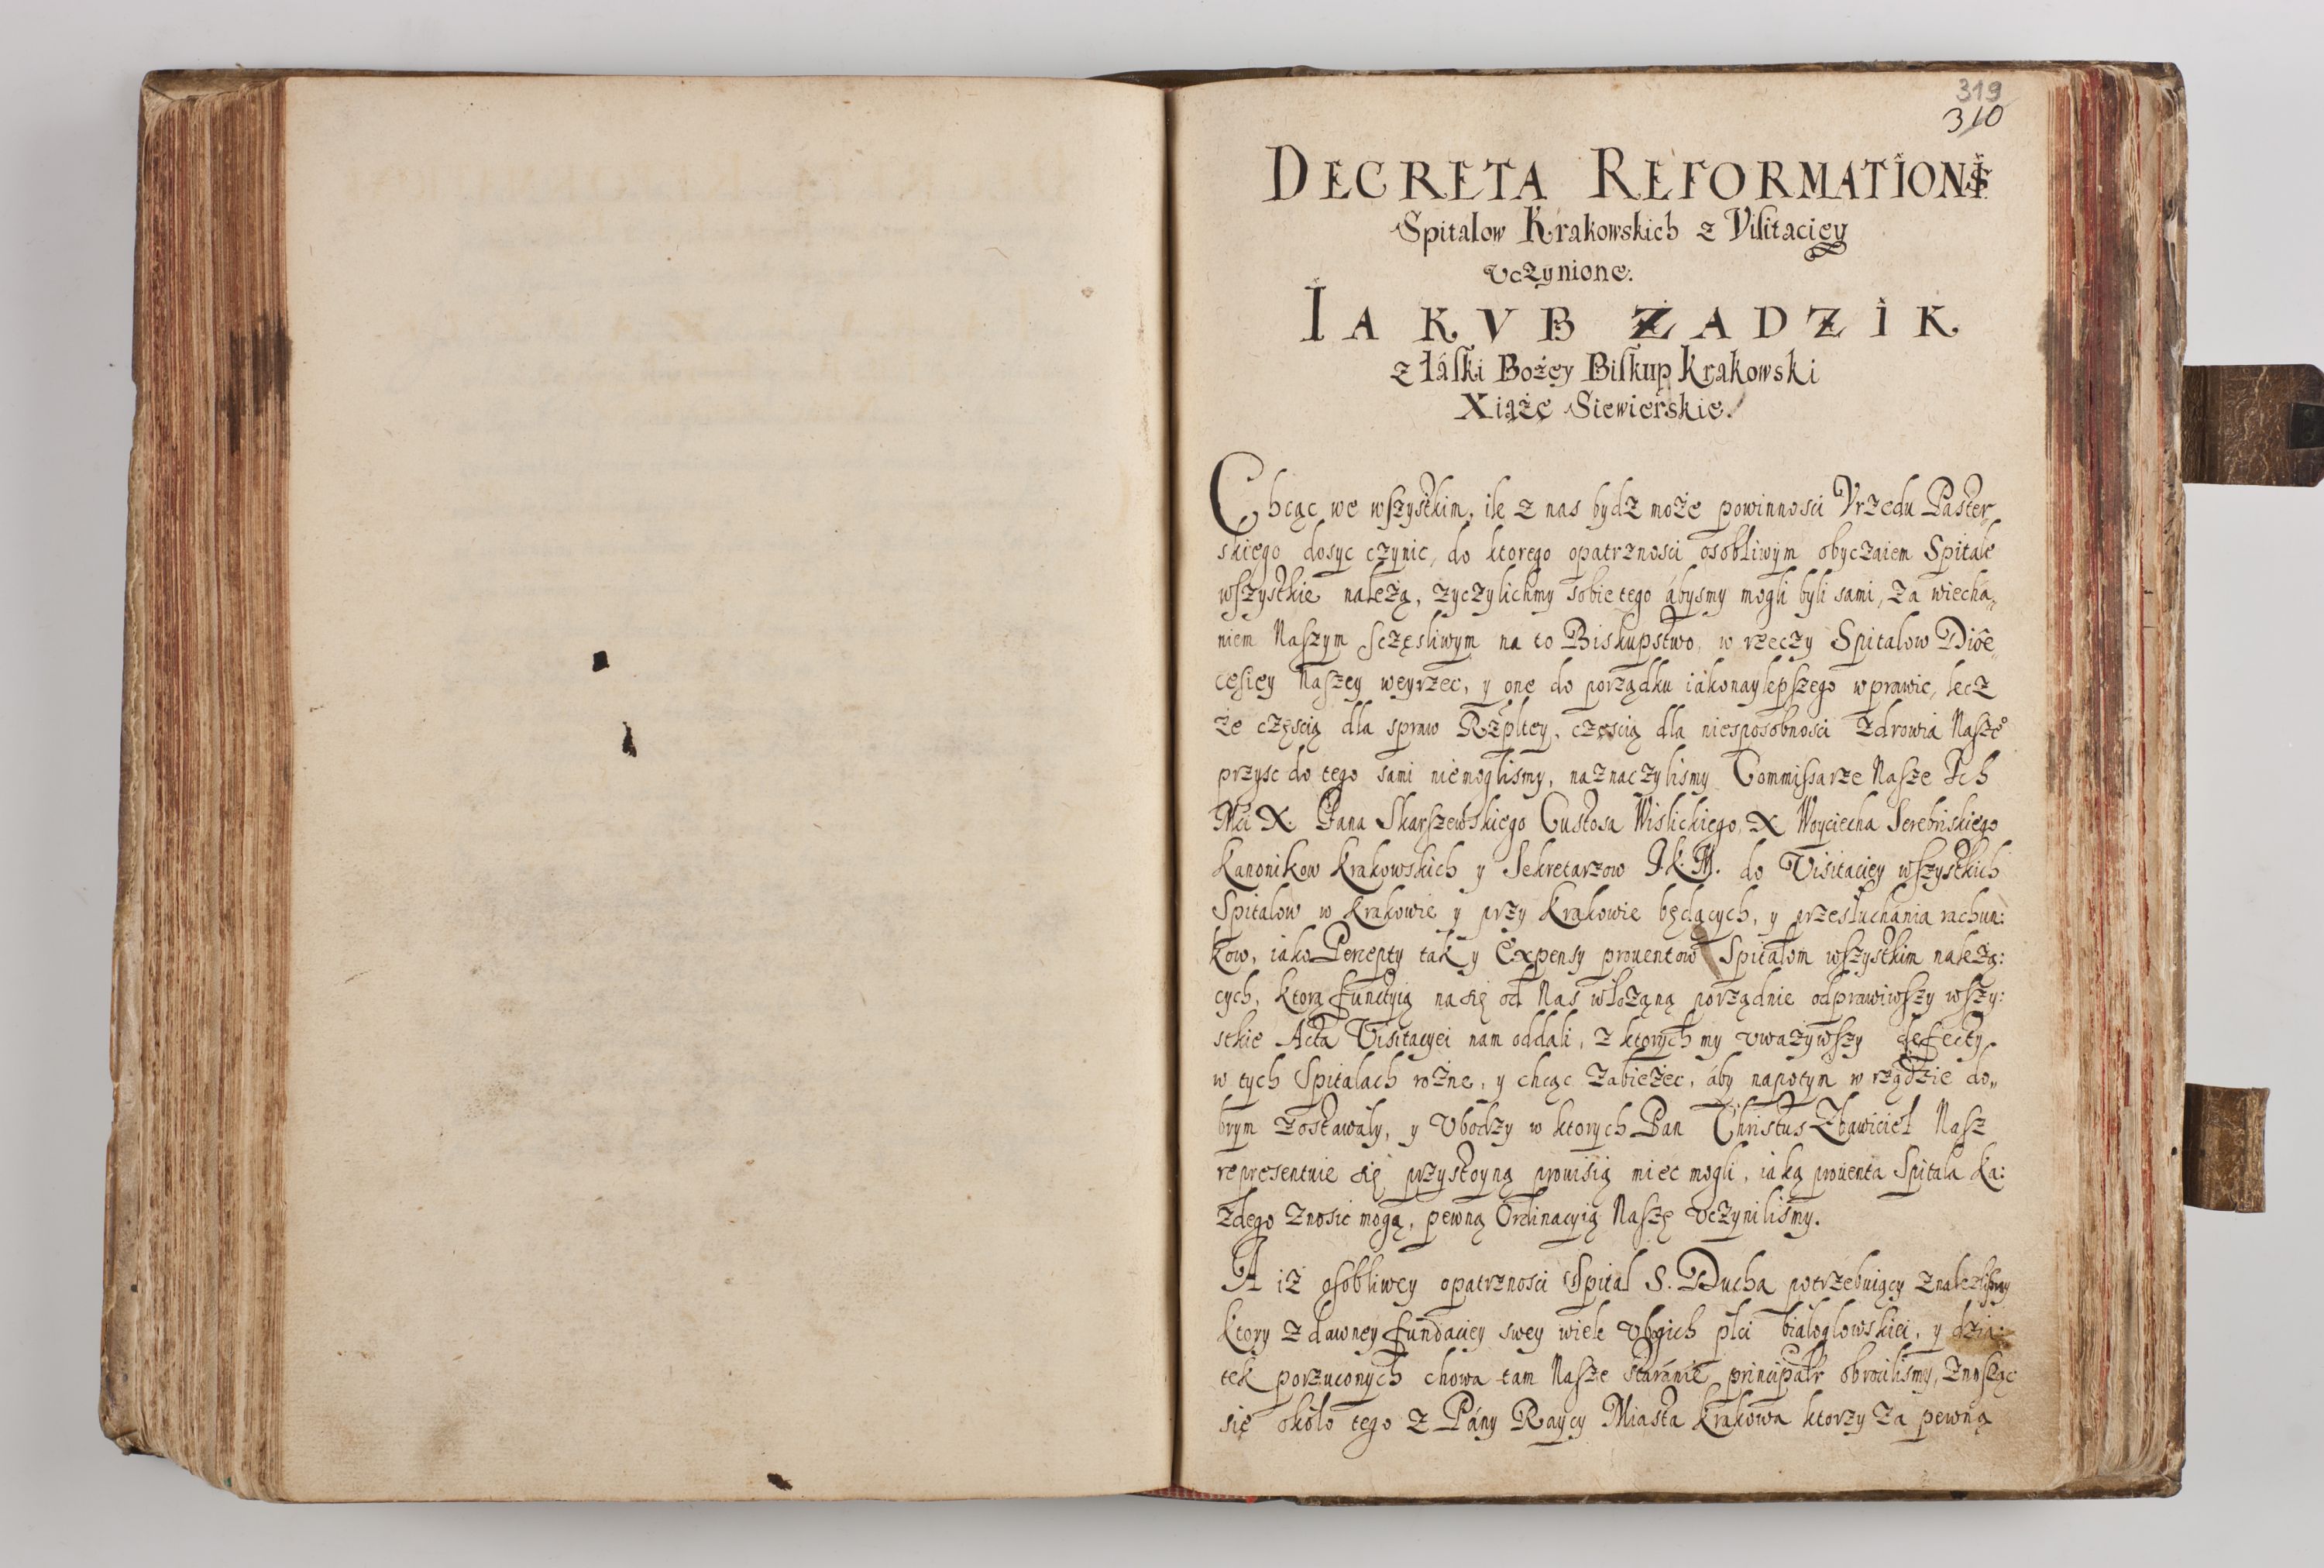 319
310
DECRETA REFORMATIONIS
Spitalow Krakowskich z Visitaciey
vczynione.
IAKVB ZADZIK
z łáski Bożey Biskup Krakowski
Xiążę Siewierskie.
Chcąc we wszystkim, ile z nas bydz może powinnosci Vrzedu Paster„
skiego dosyc czynic, do ktorego opatrznosci osobliwym obyczaiem Spitale
wszystkie należą, zyczylichmy sobie tego ábysmy mogli byli sami, za wiecha„
niem Naszym sczęsliwym na to Biskupstwo, w rzeczy Spitalow Diœ„
cęsiey Naszey weyrzec, y one do porządku iákonaylepszego wprawic, lecz
że częscią dla spraw Rzpltey, częscią dla niesposobnosci zdrowia Naszeº
przysc do tego sami niemoglismy, naznaczylismy Commissarze Nasze Ich
Mći X. Jana Skarszewskiego Custosa Wislickiego, X Woyciecha Serebriskiego
Kanonikow Krakowskich y Sekretarzow J.K.M. do Visitaciey wszystkich
Spitalow w Krakowie y przy Krakowie będących, y przesłuchánia rachun:
kow, iako Percepty tak y Expensy prouentow Spitalom wszystkim należą:
cych, ktorą functyią na się od Nas włożąną porządnie odprawiwszy wszy:
stkie Acta Visitacyei nam oddali, z ktorych my vważywszy defecty
w tych Spitalach rożne, y chcąc zabieżec, áby napotym w rządzie do„
brym zostawały, y Vbodzy w ktorych Pan Christus Zbawiciel Nasz
representuie się przystoyną prouisią miec mogli, iaką prouenta Spitala ka:
żdego znosic mogą, pewną Ordinacyią Naszę vczynilismy.
A iż osobliwey opatrznosci Spital S. Ducha potrzebuiący znalezlismy
ktory z dawney fundaciey swey wiele Vbogich płci białogłowskiei, y dzia:
tek porzuconych chowa tam Nasze stáránie principalr obrocilismy, znosząc
się około tego z Pány Raycy Miasta Krakowa ktorzy za pewną